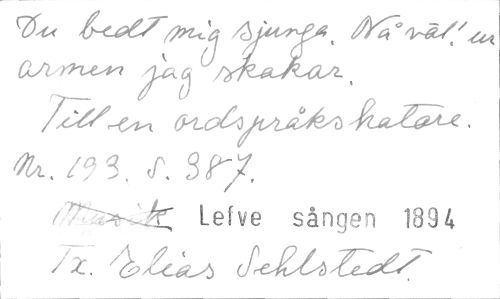 Du bedt mig sjunga. Nå väl! ur
armen jag skakar.
Till en ordspråkshatare.
Nr. 193. S. 387.
Musik Lefve sången 1894
Tx. Elias Sehlstedt.